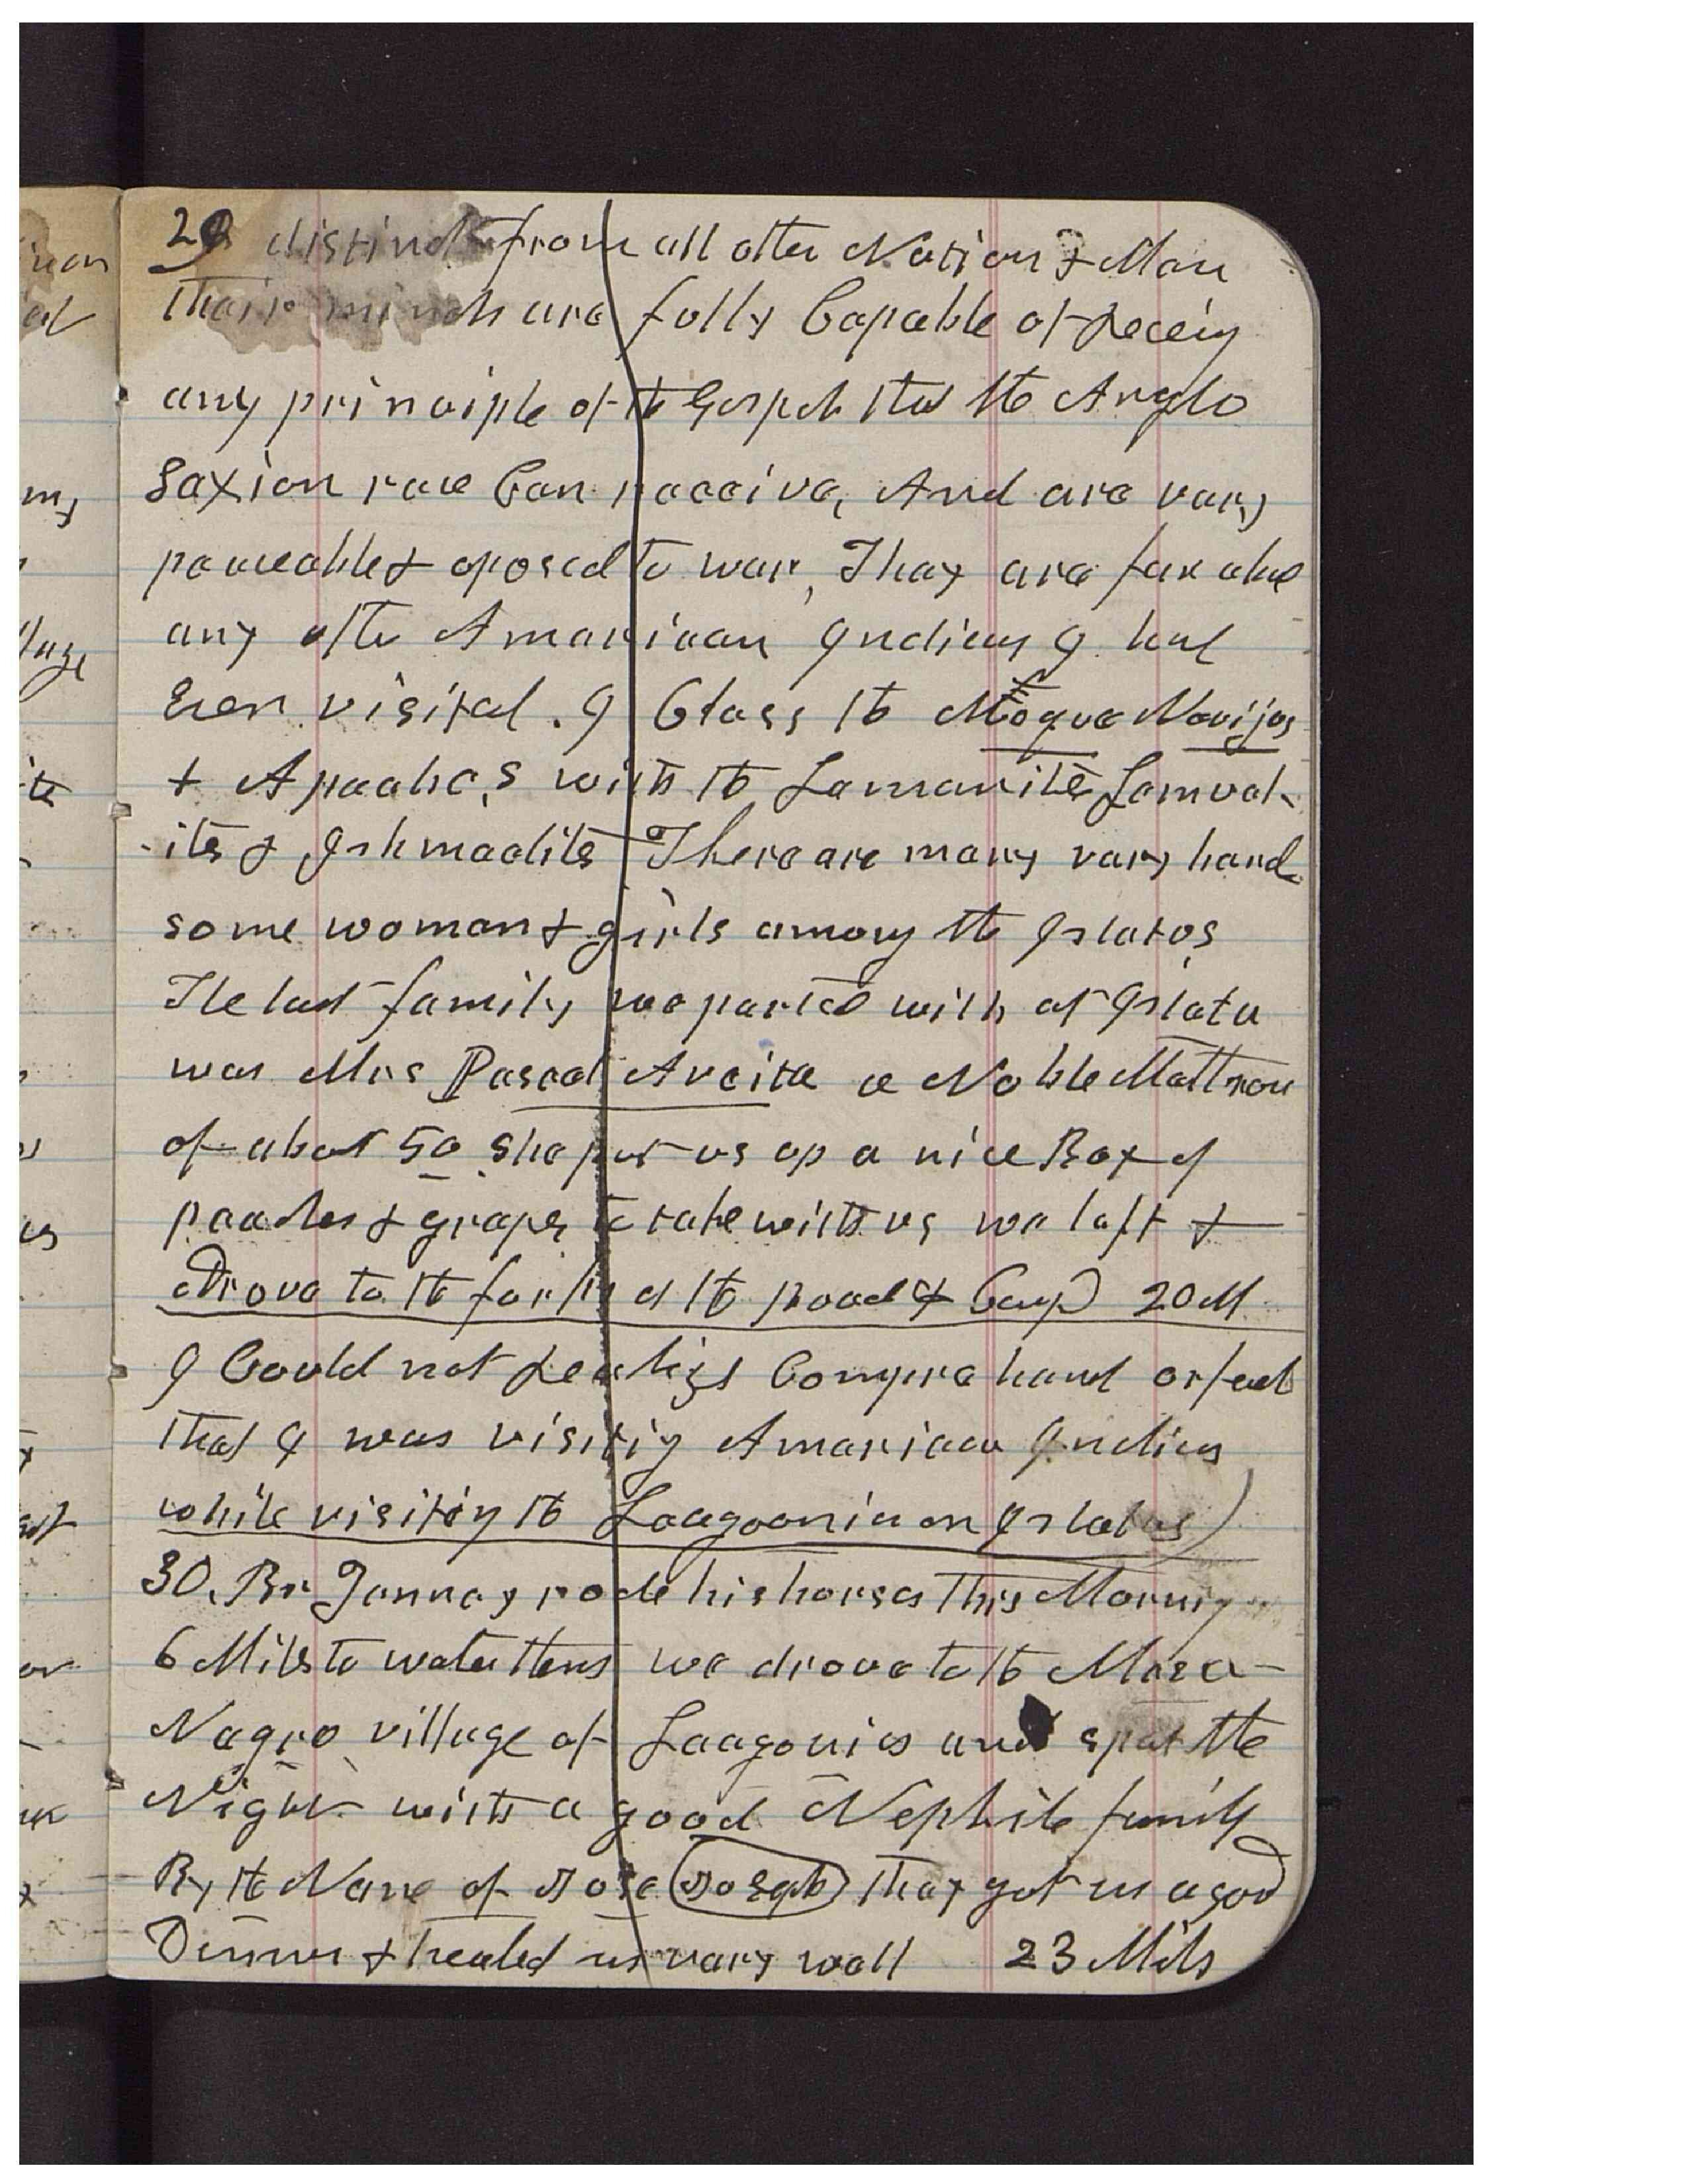 29 distinct from all other Nations & Man
their minds are fully Capable of Receivig
any principle of the Gospel that the Anglo
Saxion race Can receive, And are very
peaceable & oposed to war, They are far above
any other American Indians I had
Ever visited. I Class the Moque Navijos
& Apache,s with the Lamanites Lemuel-
-ites & Ishmaelites There are many very hand
some women & girls among the Islatos
The last family we parted with at Islata
was Mrs Pascal Aveita a Noble Mattron
of about 50 She put us up a nice Box of
peaches & grapes to take with us we left &
drove to the forks of the Road & Camp) 20 M
I Could not Realize Comprehend or feel
that I was visitig American Indians
while visitig the Laagoonian Islatus)
30. Br Tenney rode his horses This Mornig
6 Miles to water them we drove to the Mesa-
Negro village of Laagonies and spent the
Night with a good Nephite family
By the Name of Jose (Joseph) they got us a good
Dinner & treated us very well 23 Mils
my